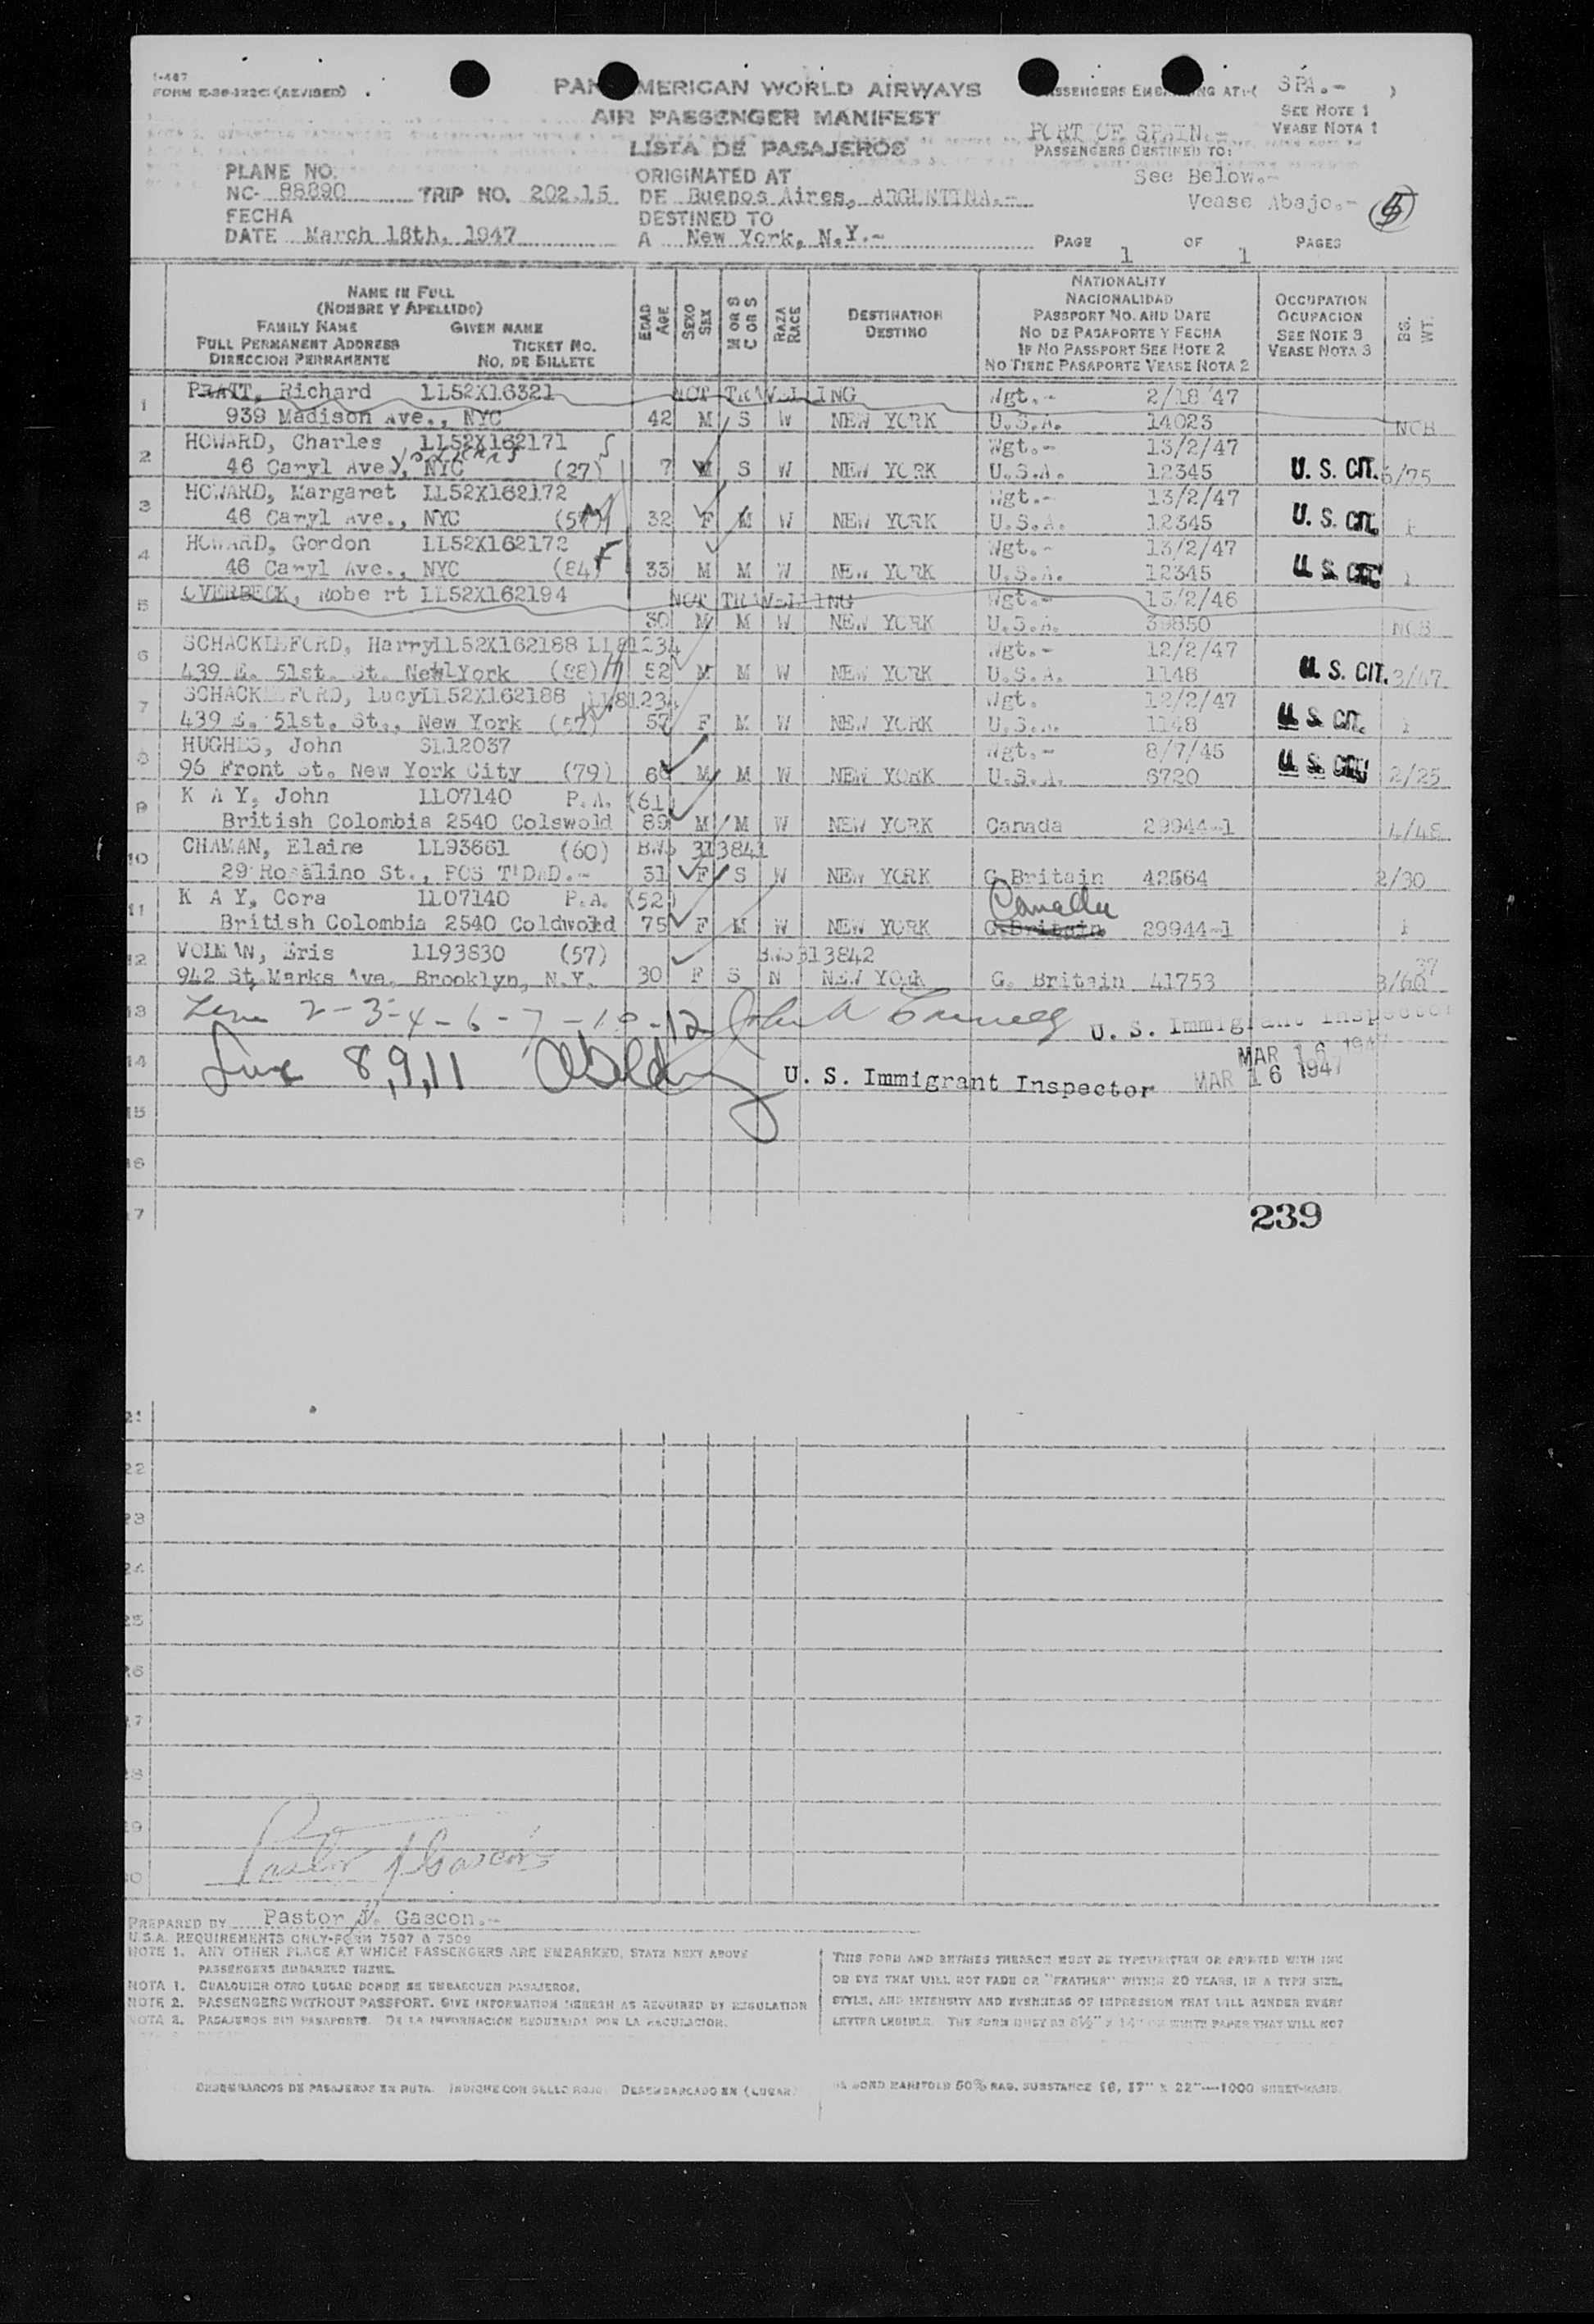 I-467
FORM E-30-122C (REVISED)
PAN AMERICAN WORLD AIRWAYS
AIR PASSENGER MANIFEST
LISTA DE PASAJEROS
PASSENGERS EMBARKING AT:( SPA.- )
SEE NOTE 1
VEASE NOTA 1
PORT OF SPAIN.-
PASSENGERS DESTINED TO:
See Below.-
Vease Abajo.-
5
PLANE NO.
NC- 88890 TRIP NO. 202.15
FECHA
DATE March 18th, 1947
ORIGINATED AT
DE Buenos Aires, ARGENTINA.-
DESTINED TO
A New York, N.Y.-
PAGE 1 OF 1 PAGES
NAME IN FULL
(NOMBRE Y APELLIDO)
FAMILY NAME GIVEN NAME
FULL PERMANENT ADDRESS TICKET NO.
DIRECCION PERMANENTE NO. DE BILLETE
EDAD
AGE
SEXO
SEX
M OR S
C OR S
RAZA
RACE
DESTINATION
DESTINO
NATIONALITY
NACIONALIDAD
PASSPORT NO. AND DATE
NO. DE PASAPORTE Y FECHA
IF NO PASSPORT SEE NOTE 2
NO TIENE PASAPORTE VEASE NOTA 2
OCCUPATION
OCUPACION
SEE NOTE 3
VEASE NOTA 3
BG.
WT.
1 PRATT, Richard LL52X16321 NOT TRAVELLING Wgt.- 2/18/47
939 Madison Ave., NYC 42 M S W NEW YORK U.S.A. 14023 NCB
2 HOWARD, Charles LL52X162171 Wgt.- 13/2/47
46 Caryl Ave, NYC (27) 7 M S W NEW YORK U.S.A. 12345 U. S. CIT. 6/75
3 HOWARD, Margaret LL52X162172 Wgt.- 13/2/47
46 Caryl Ave., NYC 32 F M W NEW YORK U.S.A. 12345 U. S. CIT.
4 HOWARD, Gordon LL52X162172 Wgt.- 13/2/47
46 Caryl Ave., NYC (84) 33 M M W NEW YORK U.S.A. 12345 U. S. CIT.
5 OVERBECK, Robe rt LL52X162194 NOT TRAVELLING Wgt.- 15/2/46
30 M M W NEW YORK U.S.A. 39850 NCB
6 SCHACKLEFORD, HarryLL52X162188 LL81234 Wgt.- 12/2/47
439 E. 51st. St. New York (88) 52 M M W NEW YORK U.S.A. 1148 U. S. CIT. 3/47
7 SCHACKLEFORD, LucyLL52X162188 LL81234 Wgt. 12/2/47
439 E. 51st. St., New York (57) 57 F M W NEW YORK U.S.A. 1148 U. S. CIT.
8 HUGHES, John SL12037 Wgt.- 8/7/45
96 Front St. New York City (79) 66 M M W NEW YORK U.S.A. 6720 U. S. CIT. 2/25
9 K A Y, John LL07140 P.A. (61)
British Colombia 2540 Colswold 89 M M W NEW YORK Canada 29944-1 4/48
10 CHAMAN, Elaine LL93661 (60) BNS 313841
29 Rosalino St., POS T'DAD.- 31 F S W NEW YORK G Britain 42564 2/30
11 K A Y, Cora LL07140 P.A. (52) Canada
British Colombia 2540 Coldwold 75 F M W NEW YORK G.Britain 29944-1
12 VOLMAN, Eris LL93830 (57) BNS313842
942 St. Marks Ave. Brooklyn, N.Y. 30 F S N NEW YORK G. Britain 41753 3/60 37
13 Line 2-3-4-6-7-10-12 U. S. Immigrant Inspector
MAR 16 1947
14 Line 8,9,11 U. S. Immigrant Inspector MAR 16 1947
15
16
17
239
21
22
23
24
25
26
27
28
29
30
PREPARED BY Pastor J. Gascon.-
U.S.A. REQUIREMENTS ONLY-FORM 7507 & 7509
NOTE 1. ANY OTHER PLACE AT WHICH PASSENGERS ARE EMBARKED, STATE NEXT ABOVE
PASSENGERS EMBARKED THERE.
NOTA 1. CUALQUIER OTRO LUGAR DONDE SE EMBARQUEN PASAJEROS.
NOTE 2. PASSENGERS WITHOUT PASSPORT. GIVE INFORMATION HEREON AS REQUIRED BY REGULATION
NOTA 2. PASAJEROS SIN PASAPORTE. DE LA INFORMACION REQUERIDA POR LA REGULACION.
DESEMBARCOS DE PASAJEROS EN RUTA. INDIQUE CON SELLO ROJO: DESEMBARCADO EN (LUGAR)
THIS FORM AND ENTRIES THEREON MUST BE TYPEWRITTEN OR PRINTED WITH INK
OR DYE THAT WILL NOT FADE OR "FEATHER" WITHIN 20 YEARS, IN A TYPE SIZE,
STYLE, AND INTENSITY AND EVENNESS OF IMPRESSION THAT WILL RENDER EVERY
LETTER LEGIBLE. THE FORM MUST BE 8½" X 14" ON WHITE PAPER THAT WILL NOT
BOND MANIFOLD 50% RAG. SUBSTANCE 16, 17" X 22"—1000 SHEET-BASIS.